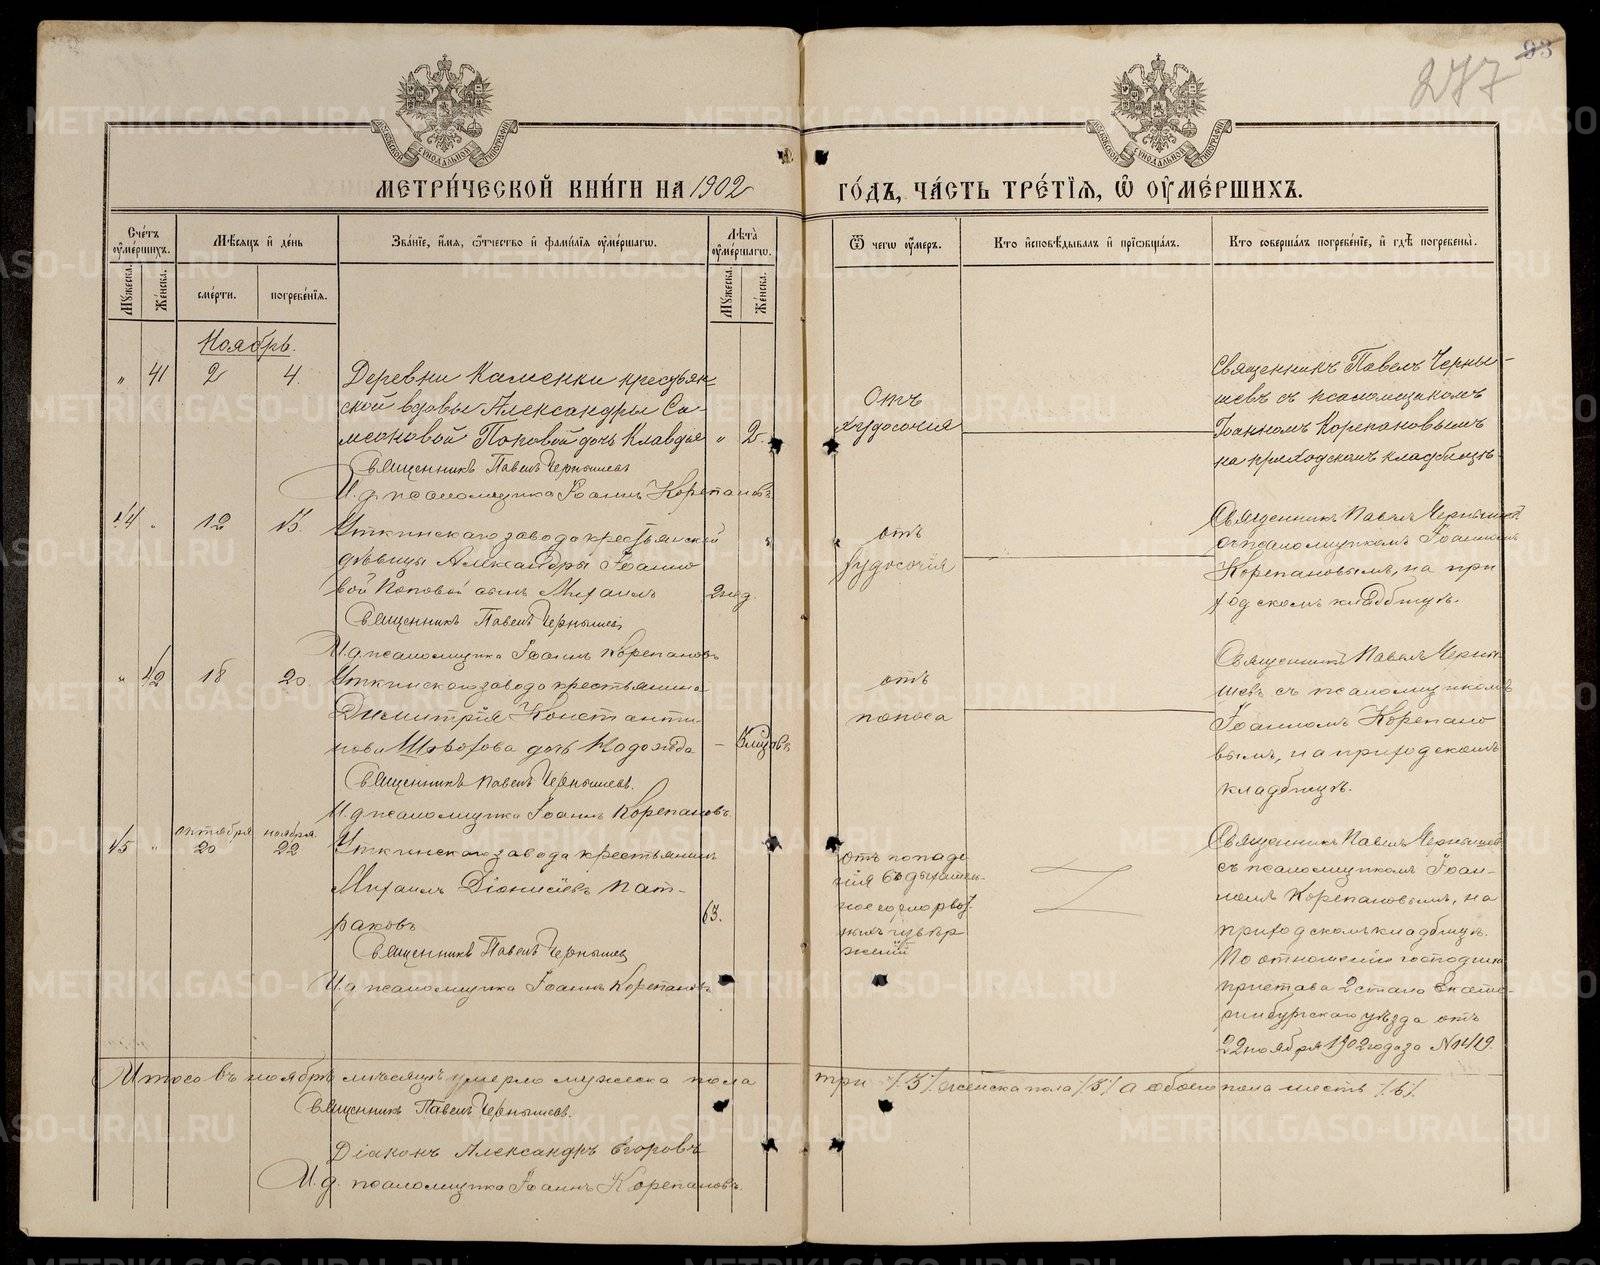 277
93
МОСКОВСКОЙ СѴНОДАЛЬНОЙ ТИПОГРАФІИ
МОСКОВСКОЙ СѴНОДАЛЬНОЙ ТИПОГРАФІИ
МЕТРИ́ЧЕСКОЙ КНИ́ГИ НА 1902 ГО́ДЪ, ЧА́СТЬ ТРЕ́ТЇѦ, Ѡ҆ ОУ҆МЕ́РШИХЪ.
Сче́тъ оу҆ме́ршихъ.
Мѣ́сѧцъ и҆ де́нь
Зва́нїе, и҆́мѧ, ѻ҆́тчество и҆ фами́лїѧ оу҆ме́ршагѡ.
Лѣ́та оу҆ме́ршагѡ.
Ѿ чегѡ̀ оу҆́меръ.
Кто̀ и҆сповѣ́дывалъ и҆ прїѡбща́лъ.
Кто̀ соверша́лъ погребе́нїе, и҆ гдѣ̀ погребены̀.
Мꙋ́жеска.
Же́нска.
сме́рти.
погребе́нїѧ.
Мꙋ́жеска.
Же́нска.
Ноябрь.
" 41 2 4.
Деревни Каменки крестьян-
ской вдовы Александры Си-
меоновой Поповой дочь Клавдія " 2
Священникъ Павелъ Чернышевъ
И. д. псаломщика Іоаннъ Корепановъ
Отъ
худосочія
Священникъ Павелъ Черны-
шевъ съ псаломщикомъ
Іоанномъ Корепановымъ
на приходскомъ кладбищѣ.
44 " 12 15
Уткинскаго завода крестьянской
дѣвицы Александры Іоанно
вой Поповой сынъ Михаилъ 2 нед.
Священникъ Павелъ Чернышевъ
И. д. псаломщика Іоаннъ Корепановъ
отъ
худосочія
Священникъ Павелъ Чернышевъ
съ псаломщикомъ Іоанномъ
Корепановымъ, на при
ходскомъ кладбищѣ.
" 42 18 20.
Уткинскаго завода крестьянина
Димитрія Константи
нова дочь Надежда –
Священникъ Павелъ Чернышевъ.
И. д. псаломщика Іоаннъ Корепановъ
отъ
поноса
Священникъ Павелъ Черны
шевъ съ псаломщикомъ
Іоанномъ Корепано
вымъ, на приходскомъ
кладбищѣ.
45 " октября 20 ноября 22
Уткинскаго завода крестьянинъ
Михаилъ Діонисіевъ Пат-
раковъ 63.
Священникъ Павелъ Чернышевъ
И. д. псаломщика Іоаннъ Корепановъ
отъ попаде
нія въ дыхатель-
ное горло рвот
ныхъ извер
женій
Священникъ Павелъ Чернышевъ
съ псаломщикомъ Іоан-
номъ Корепановымъ, на
приходскомъ кладбищѣ.
По отношенію господина
пристава 2 стана Екате-
ринбургскаго уѣзда отъ
22 ноября 1902 года за №1419.
Итого въ ноябрѣ мѣсяцѣ умерло мужеска пола три /3/ женска пола /3/ а обоего пола шесть /6/.
Священникъ Павелъ Чернышевъ.
Діаконъ Александръ Егоровъ
И. д. псаломщика Іоаннъ Корепановъ.
METRIKI.GASO-URAL.RU